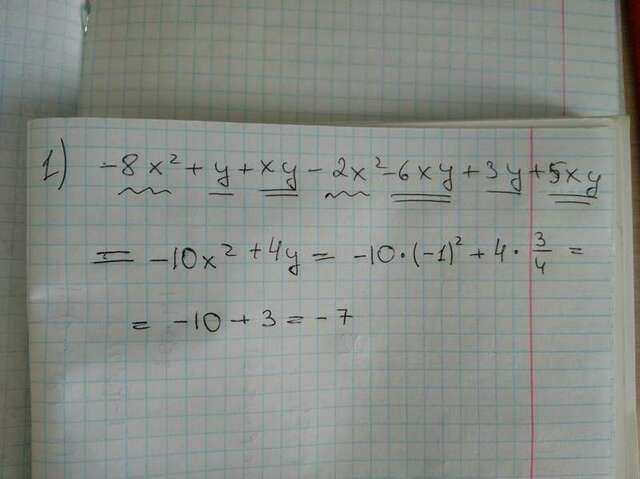 1) -8x² + y + xy - 2x² - 6xy + 3y + 5xy
= -10x² + 4y = -10·(-1)² + 4·3/4 =
= -10 + 3 = -7